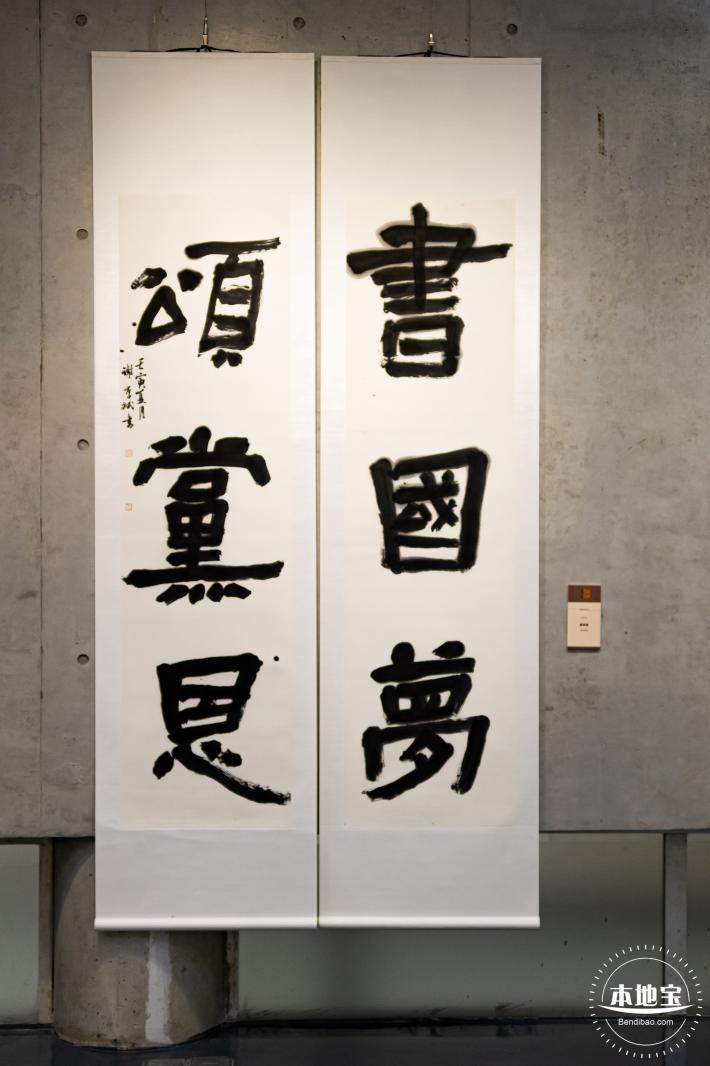 書國夢
頌黨恩
壬寅夏月
本地宝
Bendibao.com